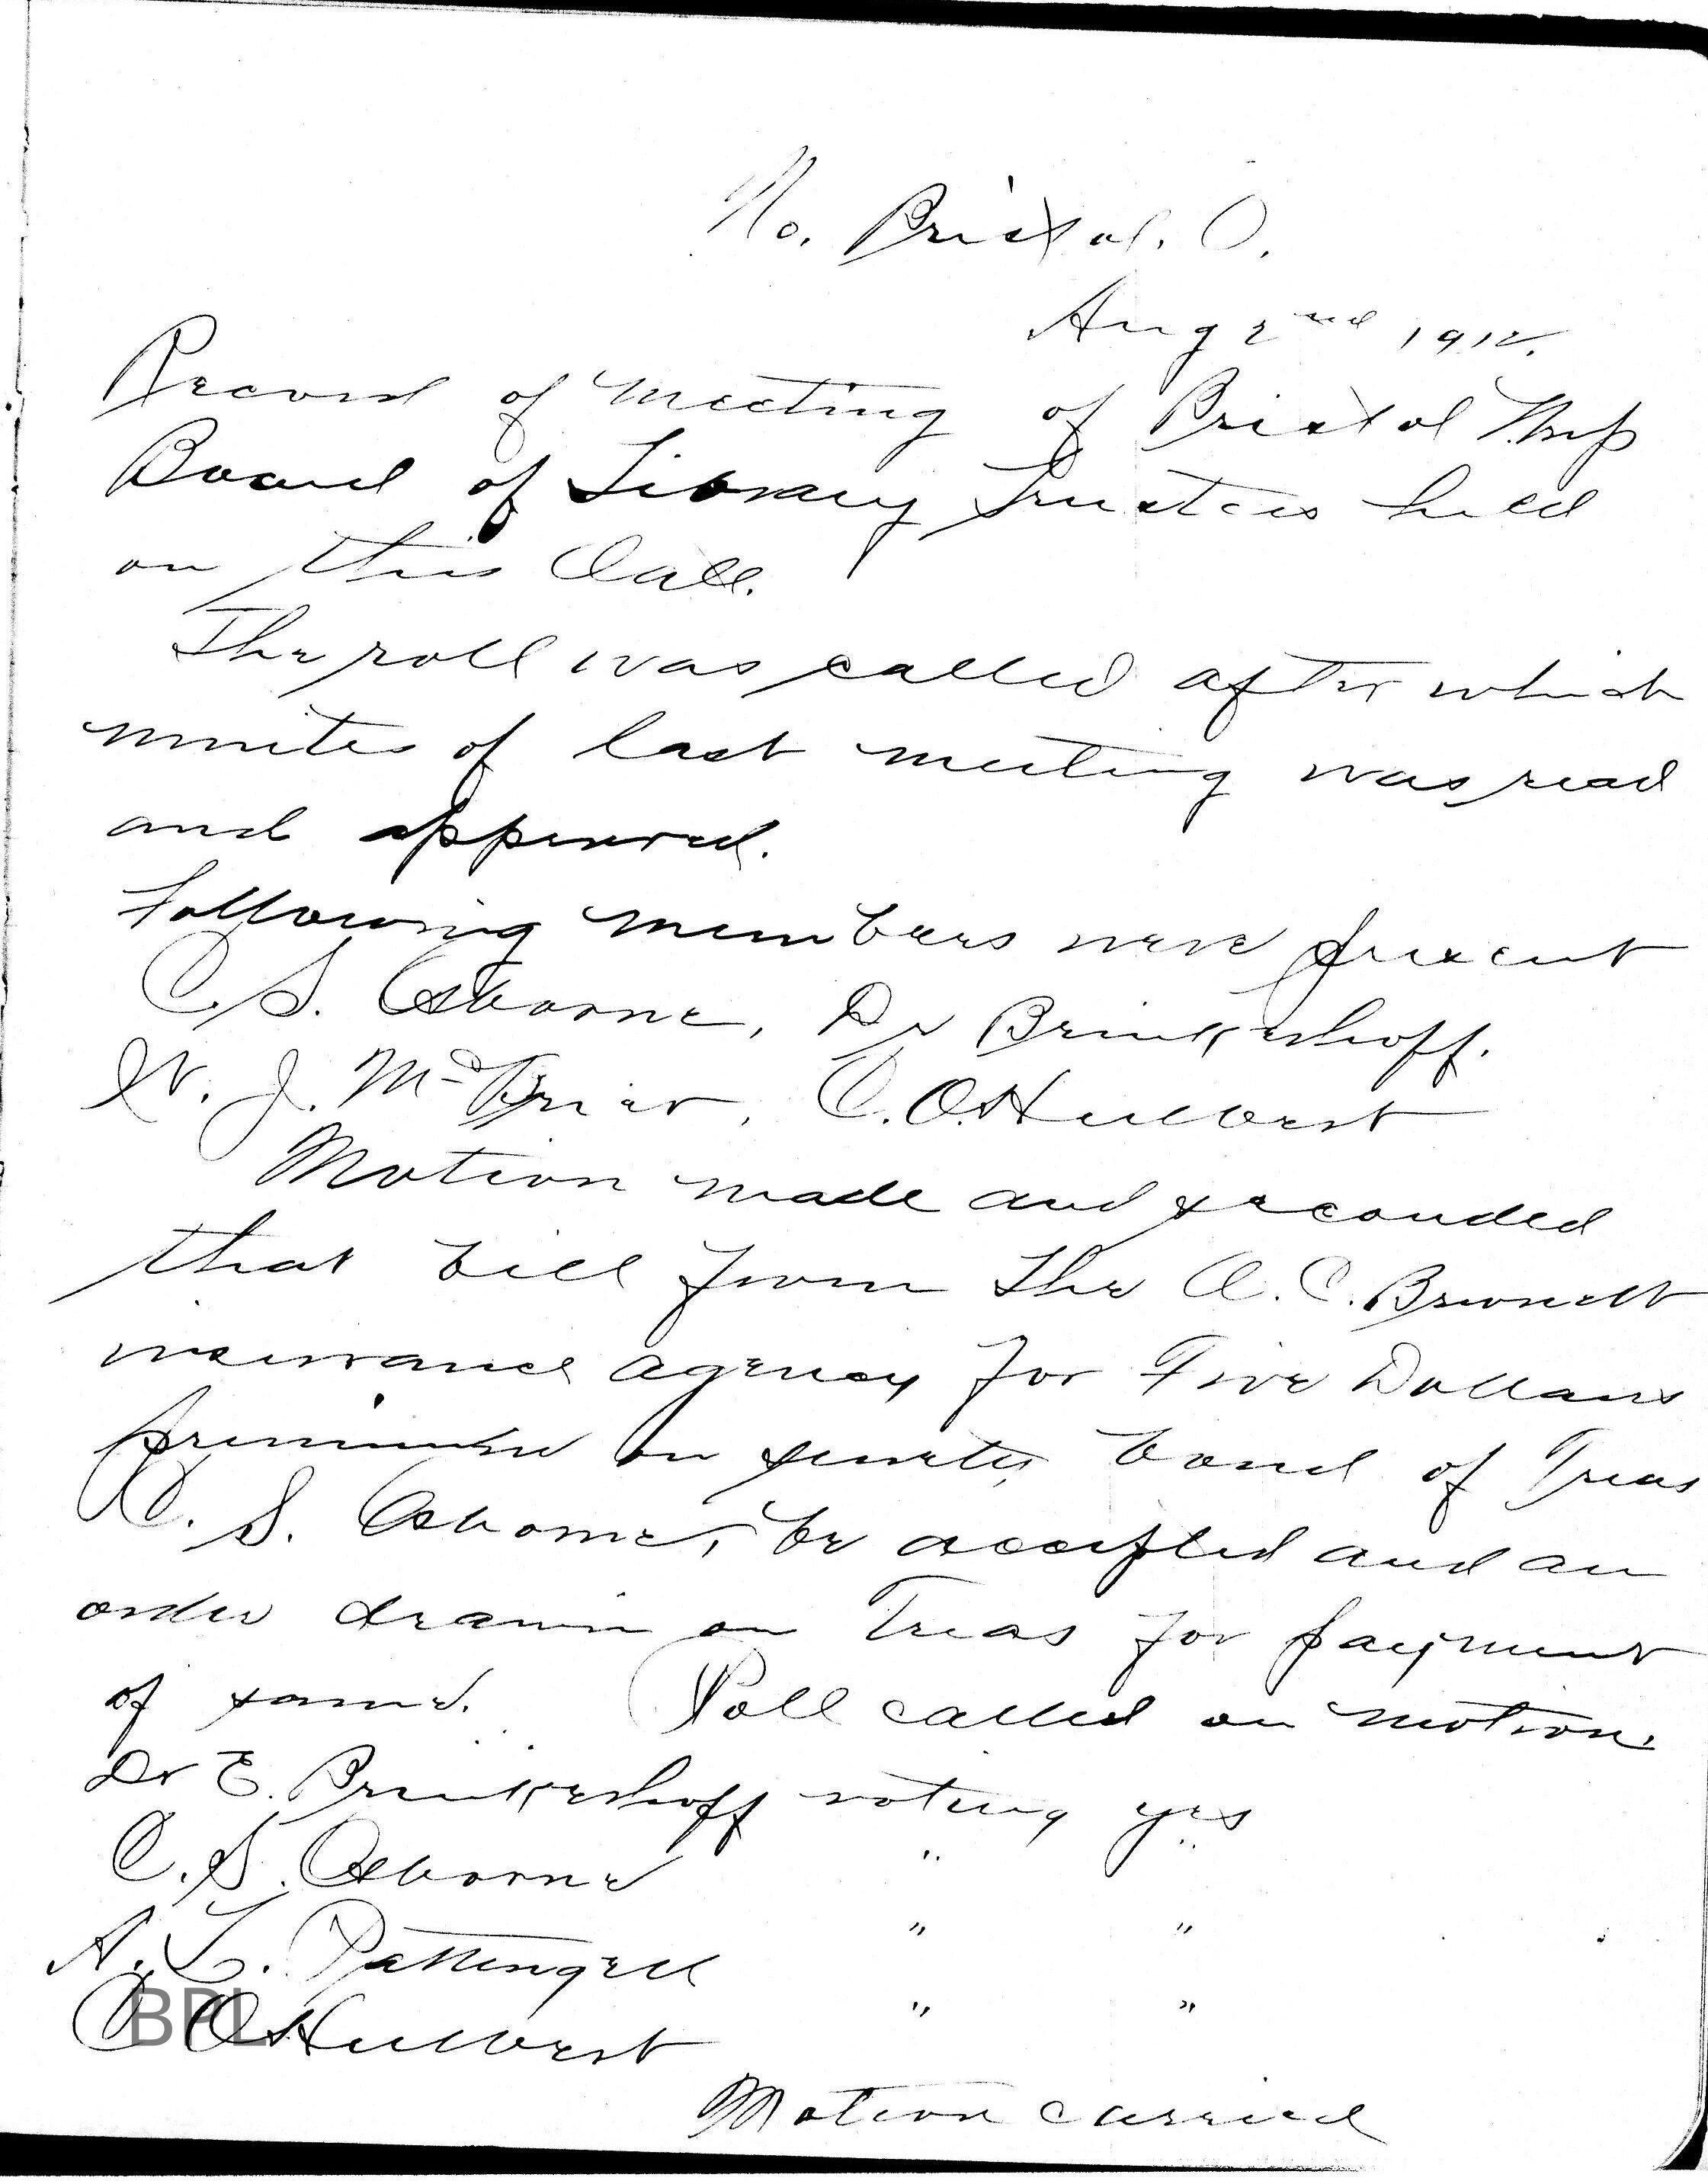 No. Bristol. O.
Aug 2nd 1912.
Record of Meeting of Bristol Twp
Board of Library Trustees held
on this Date.
The roll was called after which
minutes of last meeting was read
and approved.
Following members were present
C. S. Osborne, Dr Brinkerhoff.
W. J. McBrier, C. O. Hulbert
Motion made and seconded
that bill from The A. C. Burnett
insurance agency for Five Dollars
premium on surety bond of Treas
C. S. Osborne, be accepted and an
order drawn on Treas for payment
of same. Roll called on motion.
Dr E. Brinkerhoff voting yes
C. S. Osborne " "
A. L. Pattengell " "
C. O. Hulbert " "
BPL
Motion carried